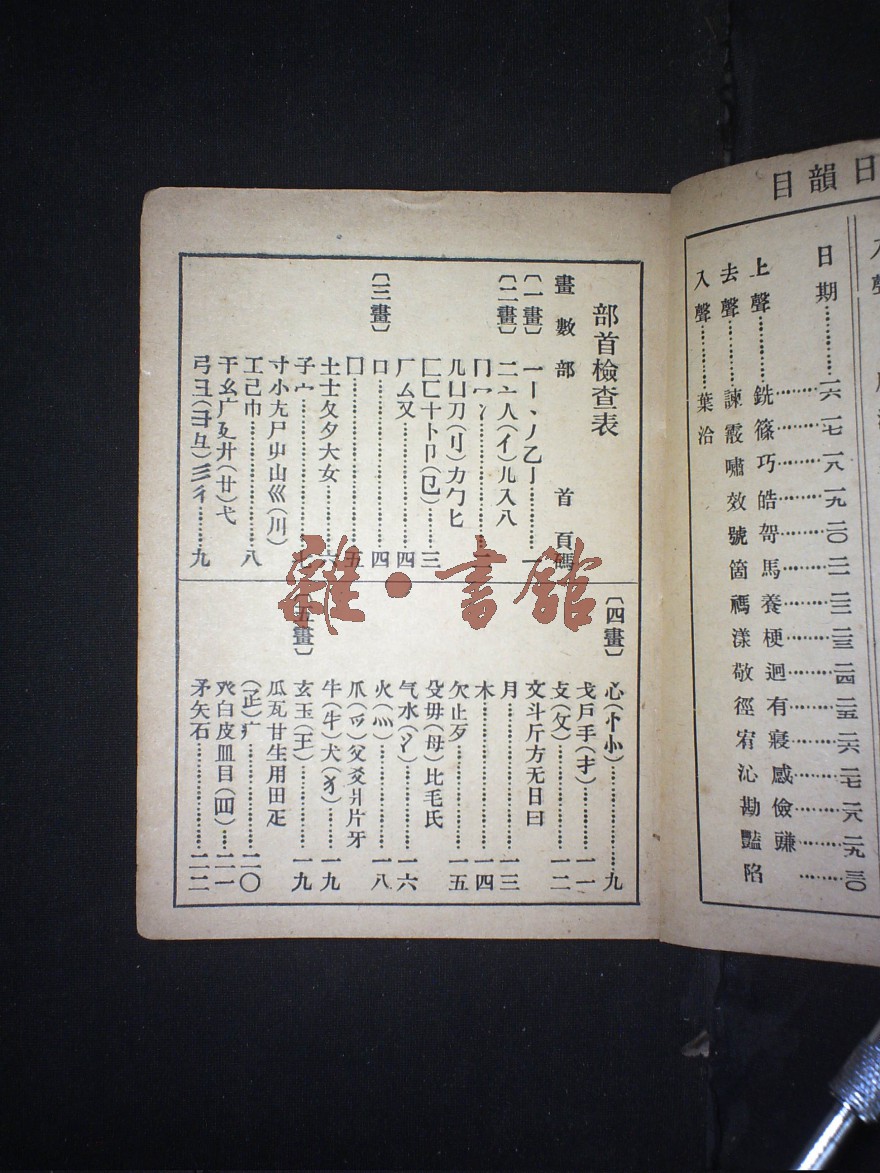 日韻目
日期………一六 一七 一八 一九 二〇 二一 二二 二三 二四 二五 二六 二七 二八 二九 三〇
上聲………銑 篠 巧 皓 哿 馬 養 梗 迥 有 寢 感 儉 豏
去聲………諫 霰 嘯 效 號 箇 禡 漾 敬 徑 宥 沁 勘 豔 陷
入聲………葉 洽
部首檢查表
畫數 部首 頁碼
〔一畫〕 一丨丶丿乙亅………一
〔二畫〕 二亠人(亻)儿入八
冂冖冫………二
几凵刀(刂)力勹匕
匚匸十卜卩(㔾)………三
厂厶又………四
〔三畫〕 口………四
囗………五
土士夂夊夕大女………六
子宀………七
寸小尢尸屮山巛(川)
工己巾………八
干幺广廴廾(廿)弋
弓彐(彑)彡彳………九
〔四畫〕 心(忄㣺)………九
戈戶手(扌)………一一
攴(攵)………一二
文斗斤方无日曰
月………一三
木………一四
欠止歹………一五
殳毋(母)比毛氏
气水(氵)………一六
火(灬)………一八
爪(爫)父爻爿片牙
牛(牜)犬(犭)………一九
〔五畫〕 玄玉(王)………一九
瓜瓦甘生用田疋
(𤴔)疒………二〇
癶白皮皿目(罒)………二一
矛矢石………二二
雜·書館